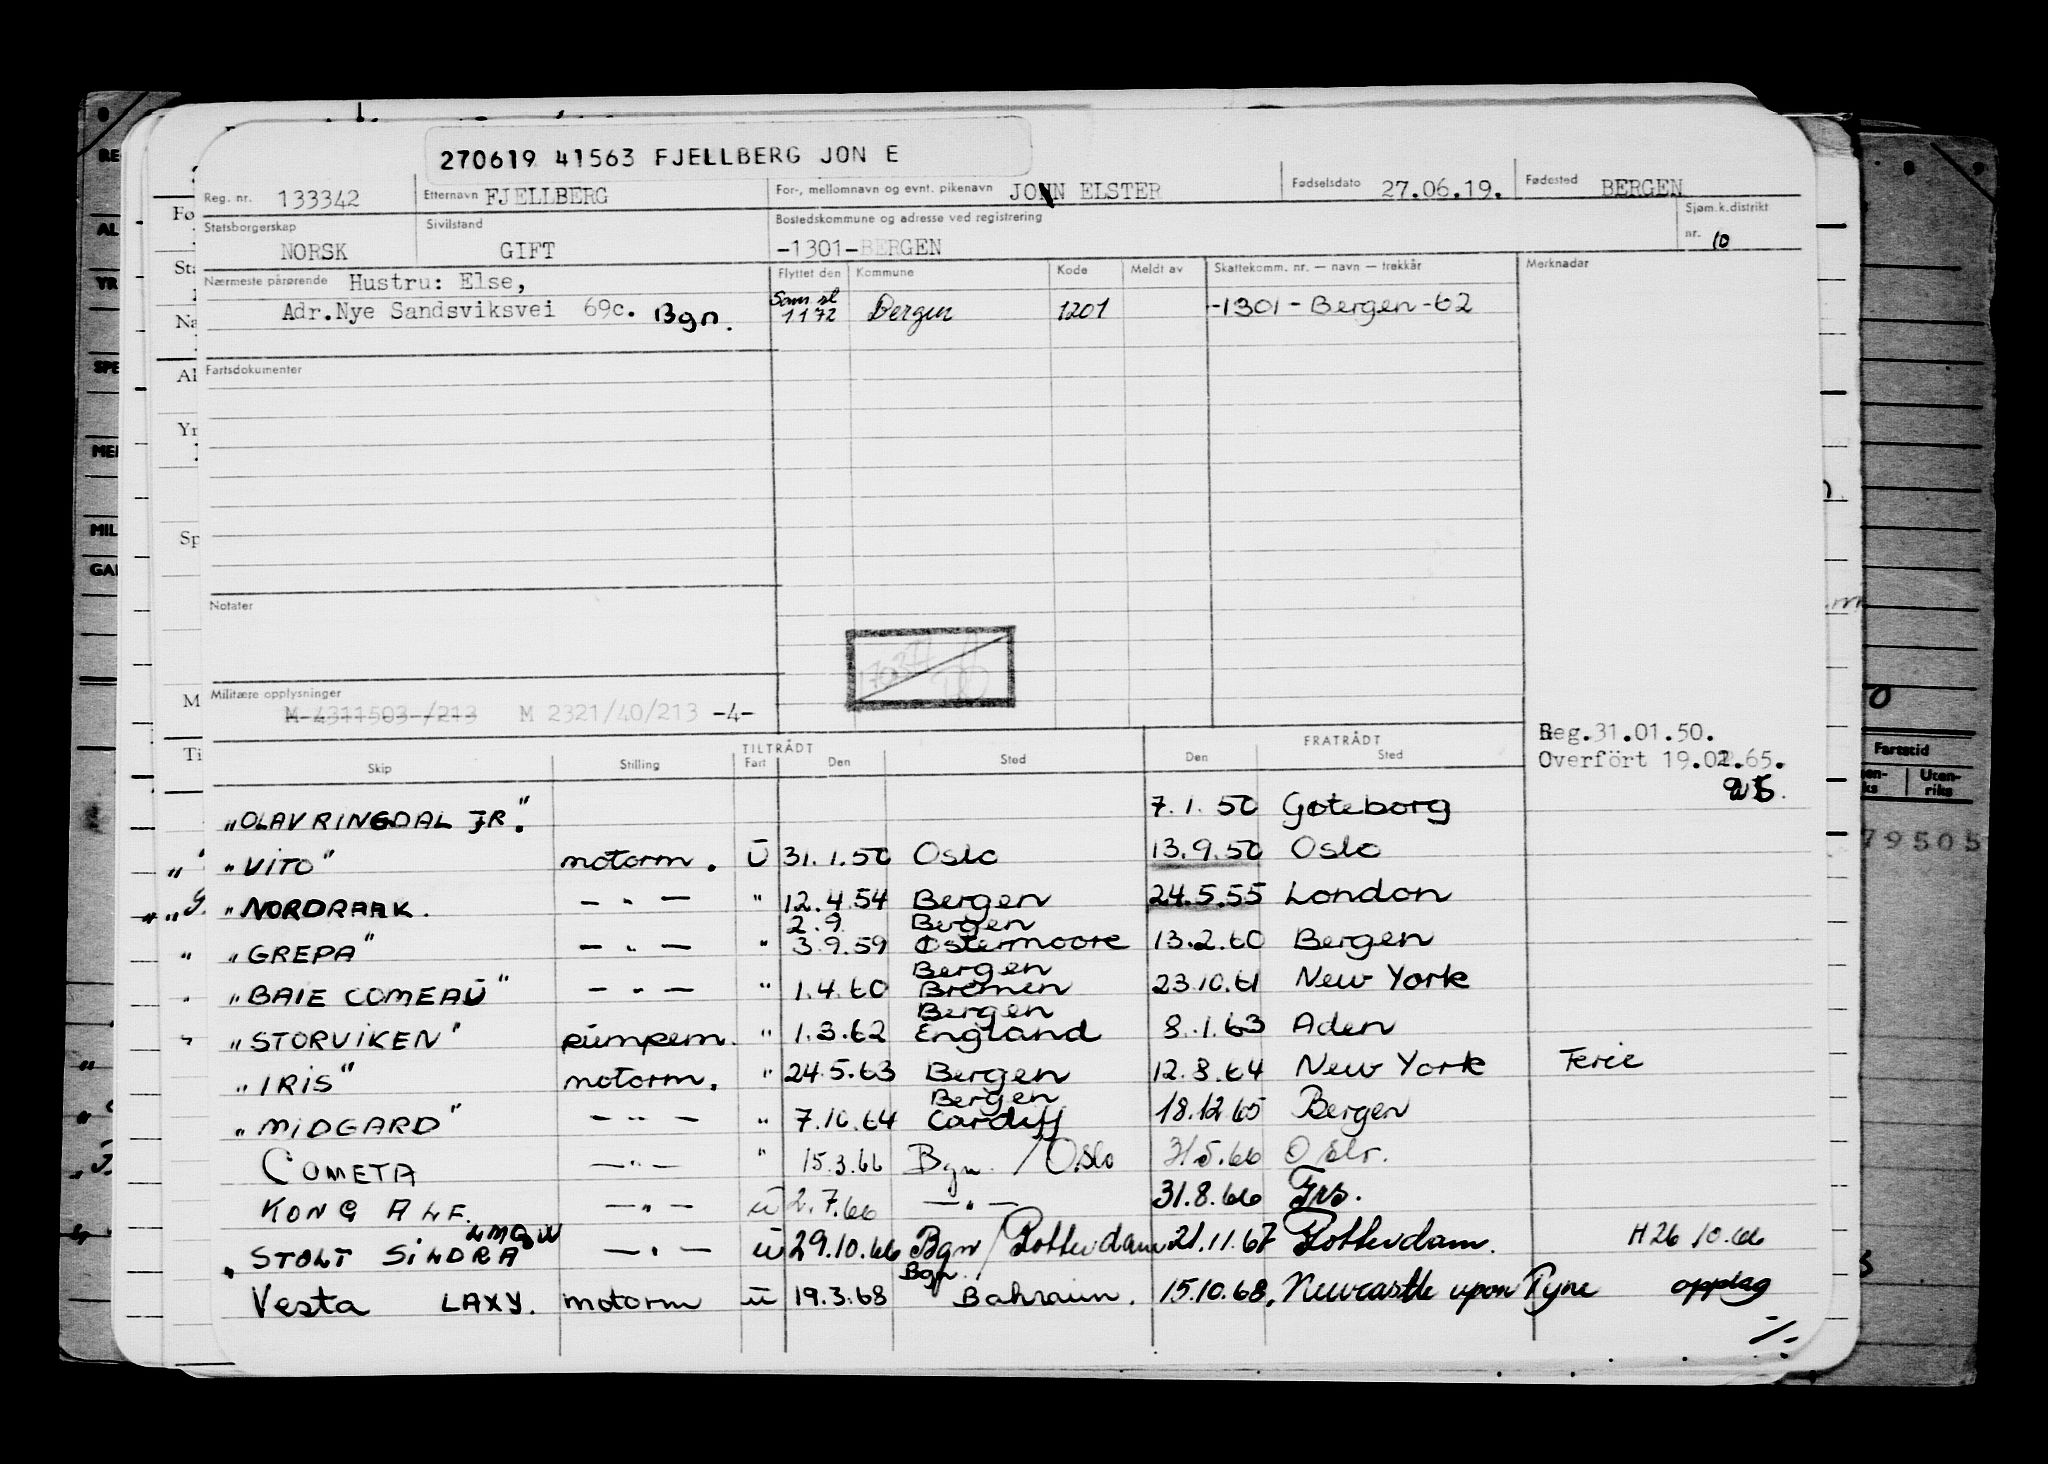 270619 41563 FJELLBERG JON E
Reg. nr. 133342 Etternavn FJELLBERG For-, mellomnavn og evnt. pikenavn JON ELSTER Fødselsdato 27.06.19. Fødested BERGEN
Statsborgerskap NORSK Sivilstand GIFT Bostedskommune og adresse ved registrering -1301-BERGEN Sjøm.k.distrikt nr. 10
Nærmeste pårørende Hustru: Else, Flyttet den Kommune Kode Meldt av Skattekomm. nr. — navn — trekkår Merknader
Adr.Nye Sandsviksvei 69c. Bgn. 1172 Bergen 1201 -1301-Bergen-62
Fartsdokumenter
Notater
Militære opplysninger
M 4311503 /213 M 2321/40/213 -4-
Reg.31.01.50.
Overfört 19.02.65.
TILTRÅDT FRATRÅDT
Skip Stilling Fart Den Sted Den Sted
"OLAV RINGDAL JR." 7.1.50 Goteborg
"VITO" motorm. U 31.1.50 Oslo 13.9.50 Oslo
"NORDRAAK. — " — " 12.4.54 Bergen 24.5.55 London
2.9. Bergen
"GREPA" — " — " 3.9.59 Ostermoore 13.2.60 Bergen
Bergen
"BAIE COMEAU" — " — " 1.4.60 Bremen 23.10.61 New York
Bergen
"STORVIKEN" pumpem. " 1.3.62 England 8.1.63 Aden
"IRIS" motorm. " 24.5.63 Bergen 12.8.64 New York Ferie
Bergen
"MIDGARD" — " — " 7.10.64 Cardiff 18.12.65 Bergen
COMETA — " — " 15.3.66 Bgn. / Oslo 31.5.66 Oslo.
KONG ALF. — " — U 2.7.66 — " — 31.8.66
LMQW
STOLT SILDRA — " — U 29.10.66 Bgn / Rotterdam 21.11.67 Rotterdam. H 26 10.66
Bgn.
Vesta LAXY. motorm U 19.3.68 Bahrain. 15.10.68. Newcastle upon Tyne opplag
./.
Fartstid
Uten-
riks
79505